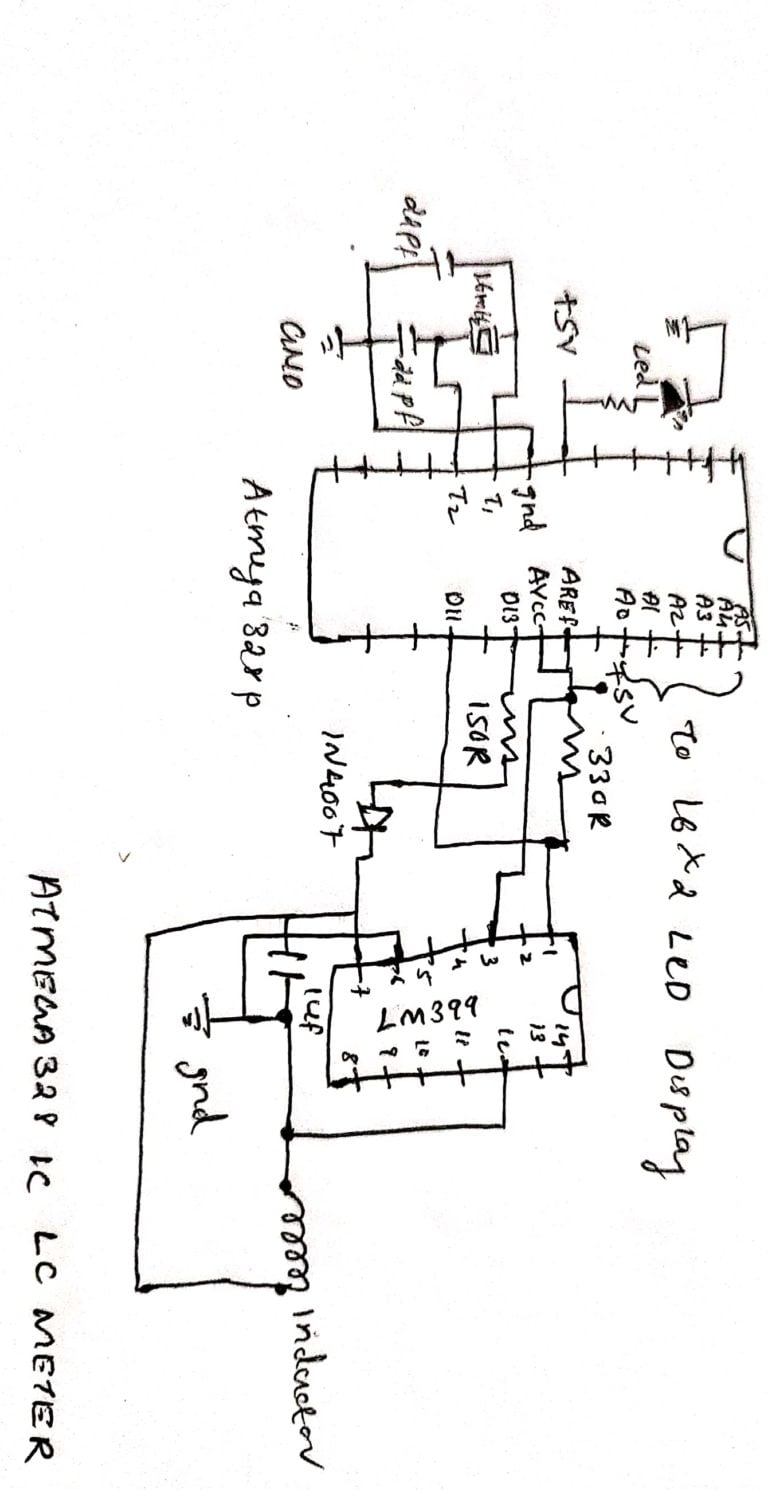 To 16X2 LED Display
Led
+5V
A5
A4
A3
A2
A1
A0
+5V
330R
AREF
AVcc
gnd
T1
T2
D13
D11
150R
+5V
16mHz
22pf
22pf
GND
1N4007
1
2
3
4
5
6
7
14
13
12
11
10
9
8
LM399
1uf
Inductor
Atmega 328p
gnd
ATMEGA328 IC LC METER